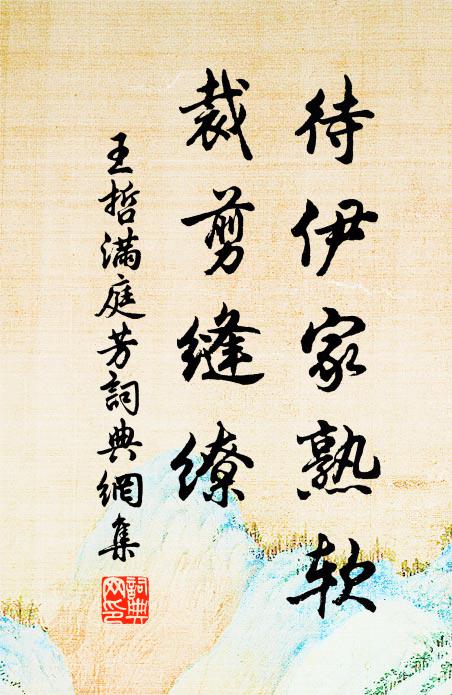 待伊家熟软
裁剪缝缭
王哲满庭芳詞典網集
詞典网印